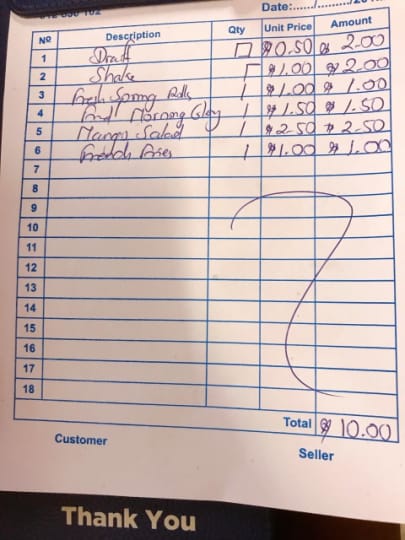 Date:
Nº Description Qty Unit Price Amount
1 Draft $0.50 $ 2.00
2 Shake $1.00 $ 2.00
3 Fresh Spring Rolls 1 $1.00 $ 1.00
4 Morning Glory 1 $1.50 $ 1.50
5 Mango Salad 1 $2.50 $ 2.50
6 French Fries 1 $1.00 $ 1.00
7
8
9
10
11
12
13
14
15
16
17
18
Total $ 10.00
Customer Seller
Thank You